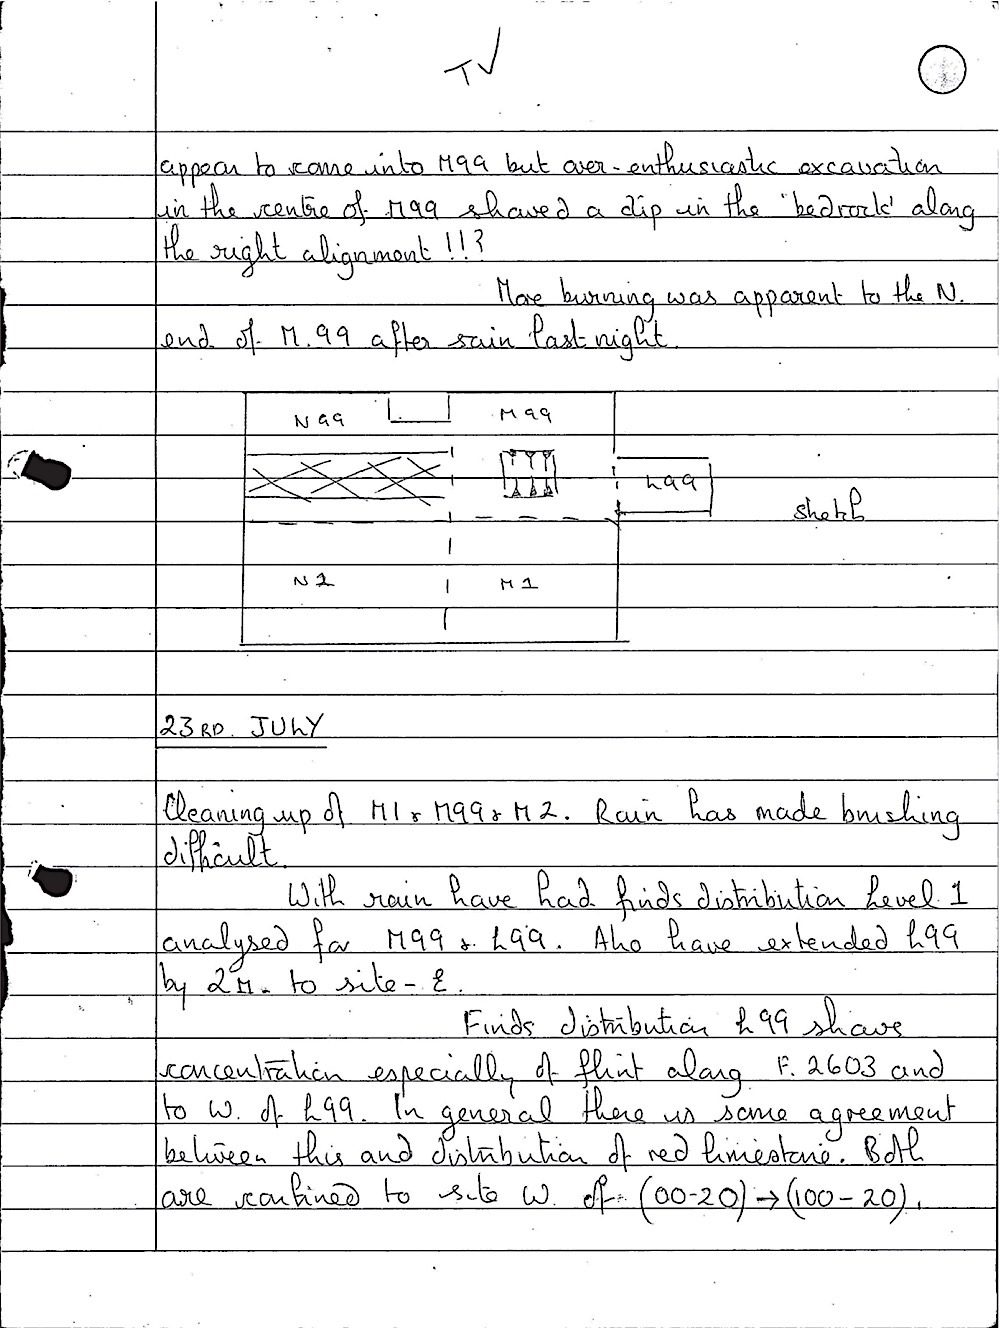 TV
appear to come into M99 but over-enthusiastic excavation
in the centre of M99 showed a dip in the 'bedrock' along
the right alignment !!?
More burning was apparent to the N.
end of M.99 after rain last night.
N99 M99
L99
sketch
N1 M1
23RD. JULY
Cleaning up of M1 & M99 & M2. Rain has made brushing
difficult.
With rain have had finds distribution Level 1
analysed for M99 & L99. Also have extended L99
by 2M. to site-E.
Finds distribution L99 shows
concentration especially of flint along F. 2603 and
to W. of L99. In general there is some agreement
between this and distribution of red limestone. Both
are confined to site W. of (00-20) → (100-20).